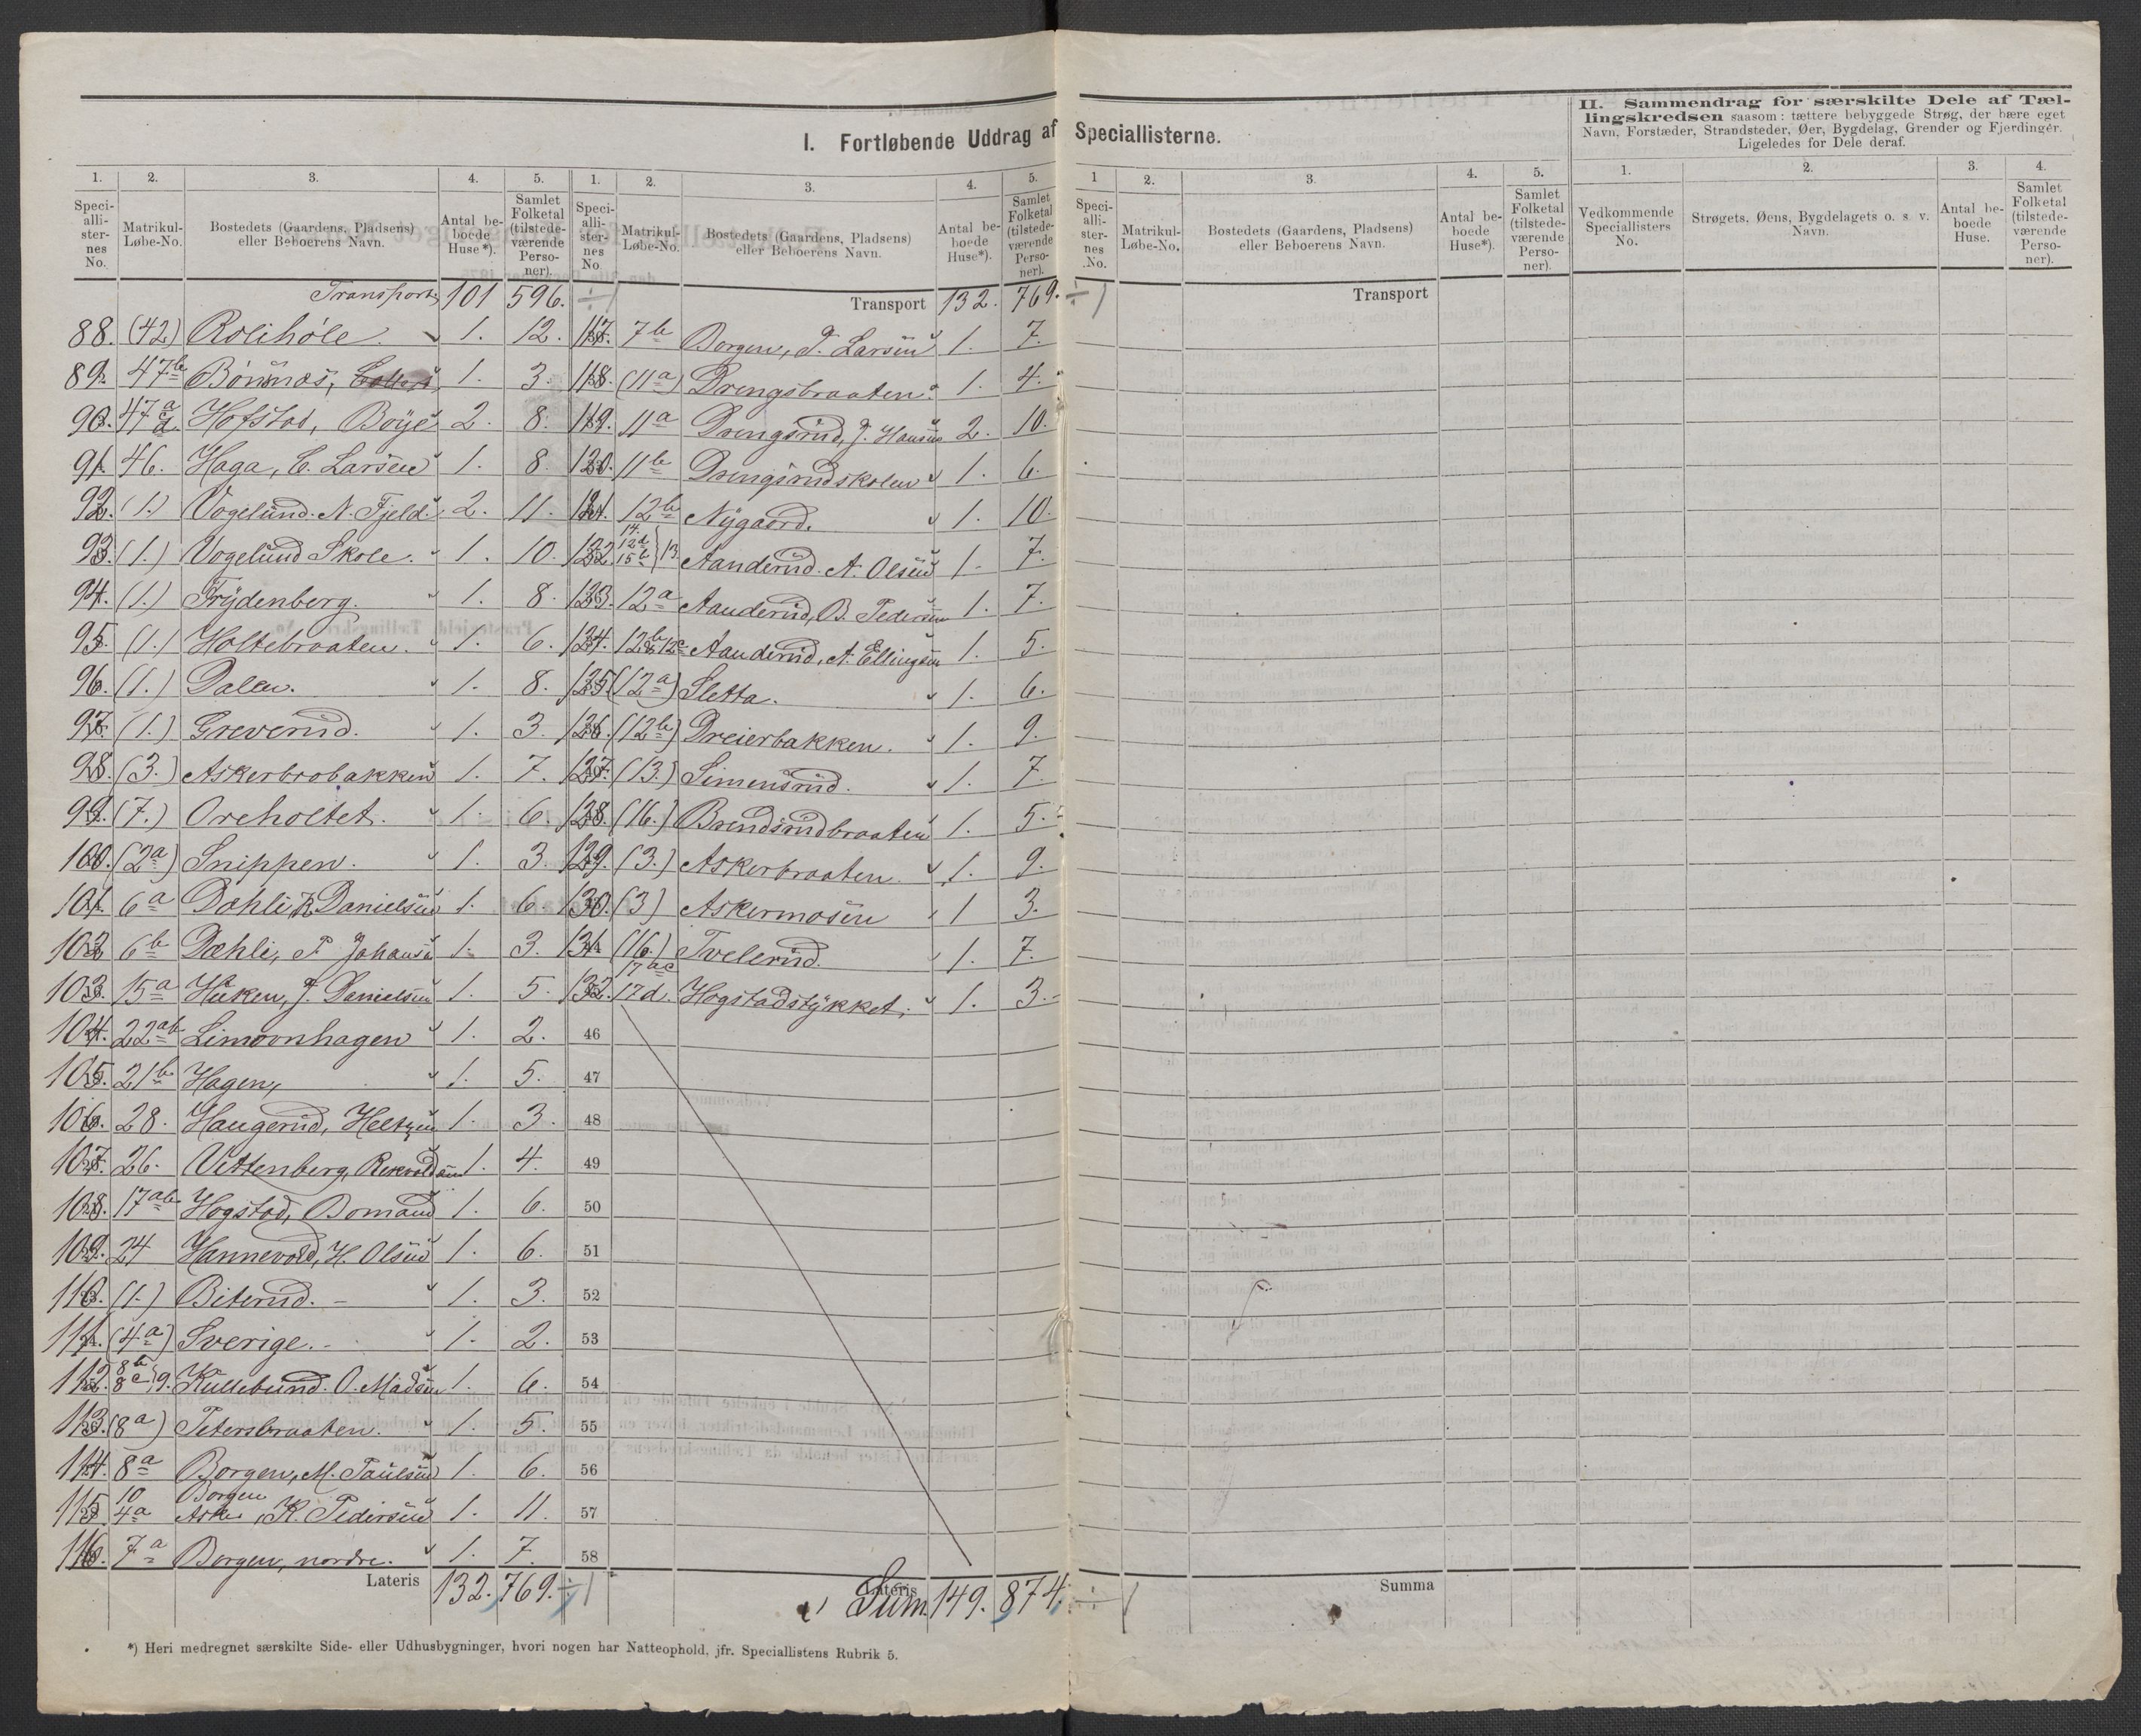 I. Fortløbende Uddrag af Speciallisterne.
1. 2. 3. 4. 5.
Speciallisternes No. Matrikul-Løbe-No. Bostedets (Gaardens, Pladsens) eller Beboerens Navn. Antal beboede Huse*). Samlet Folketal (tilstedeværende Personer).
Transport 101 596. ÷1
88. (42) Rolihöle. 1. 12.
89. 47b Bönsnæs, 1. 3.
90. 47a d Hofstad, Boye 2. 8.
91. 46. Haga, C. Larsen 1. 8.
92. (1.) Vogelund. N. Fjeld. 2. 11.
93. (1.) Vogelund Skole. 1. 10.
94. (1.) Frydenberg. 1. 8.
95. (1.) Holtebraaten. 1. 6.
96. (1.) Dalen. 1. 8.
97. (1.) Greverud. 1. 3.
98. (3.) Askerbrobakken 1. 7.
99. (7.) Oreholtet. 1. 6.
100. (2a) Snippen. 1. 3.
101. 6a Dæhli, R. Danielsen 1. 6.
102. 6b Dæhli, P. Johans. 1. 3.
103. 15a Huken, J. Danielsen 1. 5.
104. 22ab Limovnhagen 1. 2.
105. 21b Hagen, 1. 5.
106. 28. Haugerud, Heltzen 1. 3.
107. 26. Vettenberg, 1. 4.
108. 17ab Hogstad, Bomand 1. 6.
109. 24 Hannevold, H. Olsen 1. 6.
110. (1.) Biterud. – 1. 3.
111. (4a) Sverige. – 1. 2.
112. 8b 8c 9. Kullebund. O. Madsen 1. 6.
113. (8a) Petersbraaten. 1. 5.
114. 8a Borgen, M. Paulsen 1. 6.
115. 10 4a Borgen Asker, K. Pedersen 1. 11.
116. 7a Borgen, nordre. 1. 7.
Lateris 132. 769. ÷1
1. 2. 3. 4. 5.
Speciallisternes No. Matrikul-Løbe-No. Bostedets (Gaardens, Pladsens) eller Beboerens Navn. Antal beboede Huse*). Samlet Folketal (tilstedeværende Personer).
Transport 132. 769. ÷1
117. 7b Borgen, P. Larsen 1. 7.
118. (11a) Drengsbraaten. 1. 4.
119. 11a Drengsrud, J. Hansen 2. 10.
120. 11b Drengsrudskolen 1. 6.
121. 12b Nygaard. 1. 10.
122. 14. 12d 15b 13. Aanderud. A. Olsen 1. 7.
123. 12a Aanderud, B. Pedersen 1. 7.
124. 12b & 12c Aanderud, A. Ellingsen 1. 5.
125. (12a) Sletta. 1. 6.
126. (12b) Dreierbakken. 1. 9.
127. (13.) Simensrud. 1. 7.
128. (16.) Brendsrudbraaten 1. 5.
129. (3.) Askerbraaten 1. 9.
130. (3) Askermosen 1 3.
131. (16.) Tvelerud. 1. 7.
132. 17ac 17d. Hogstadstykket. 1. 3.
46
47
48
49
50
51
52
53
54
55
56
57
58
Lateris Sum. 149. 874. ÷1
1 2. 3. 4. 5.
Speciallisternes No. Matrikul-Løbe-No. Bostedets (Gaardens, Pladsens) eller Beboerens Navn. Antal beboede Huse*). Samlet Folketal (tilstedeværende Personer).
Transport
Summa
II. Sammendrag for særskilte Dele af Tællingskredsen saasom: tættere bebyggede Strøg, der bære eget
Navn, Forstæder, Strandsteder, Øer, Bygdelag, Grender og Fjerdinger.
Ligeledes for Dele deraf.
1. 2. 3. 4.
Vedkommende Speciallisters No. Strøgets, Øens, Bygdelagets o. s. v. Navn. Antal beboede Huse. Samlet Folketal (tilstedeværende Personer).
*) Heri medregnet særskilte Side- eller Udhusbygninger, hvori nogen har Natteophold, jfr. Speciallistens Rubrik 5.